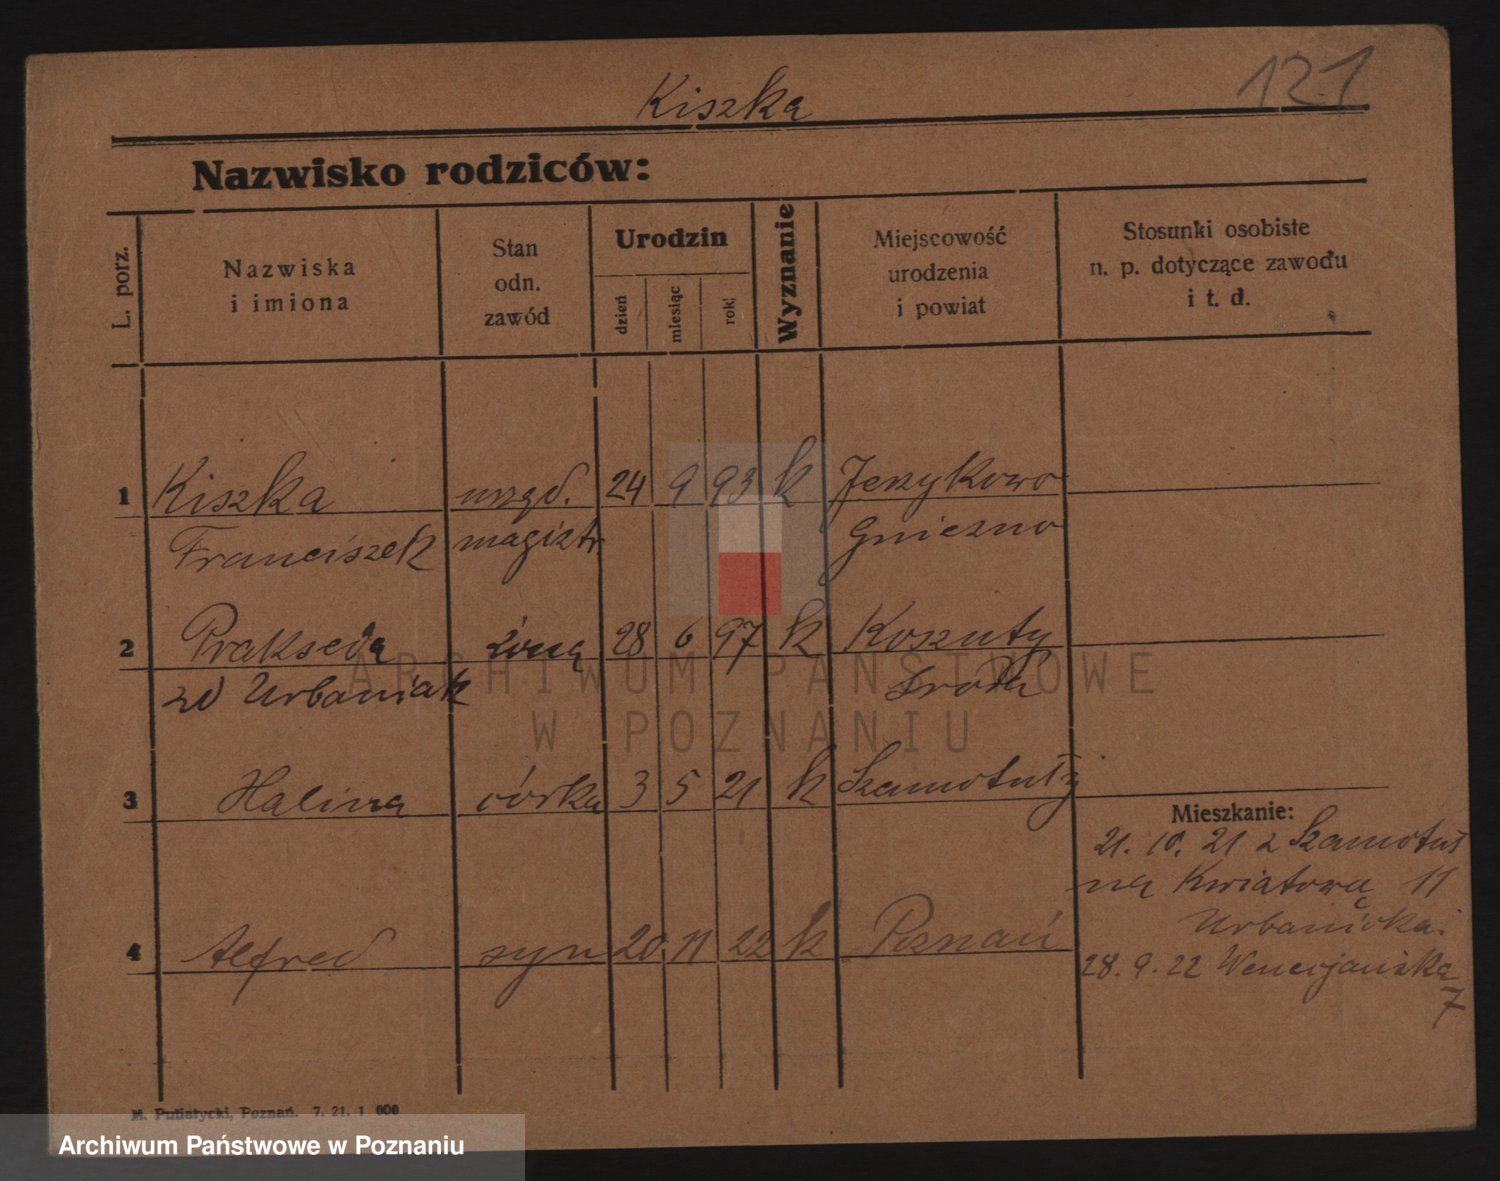 Kiszka
121
Nazwisko rodziców:
L. porz.
Nazwiska
i imiona
Stan
odn.
zawód
Urodzin
dzień
miesiąc
rok
Wyznanie
Miejscowość
urodzenia
i powiat
Stosunki osobiste
n. p. dotyczące zawodu
i t. d.
1 Kiszka urzęd. 24 9 93 k Jerzykowo
Franciszek magistr. Gniezno
2 Prakseda żona 28 6 97 k Koszuty
zd Urbaniak Środa
3 Halina córka 3 5 21 k Szamotuły
Mieszkanie:
21. 10. 21 z Szamotuł
na Kwiatową 11
4 Alfred syn 20 11 22 k Poznań
28. 9. 22 Wenecjańska
7
M. Putiatycki, Poznań. 7. 21. 1 000
ARCHIWUM PAŃSTWOWE
W POZNANIU
Archiwum Państwowe w Poznaniu